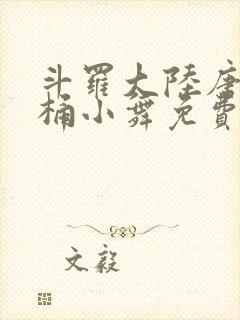 斗羅大陸唐
桶小舞免費
文毅